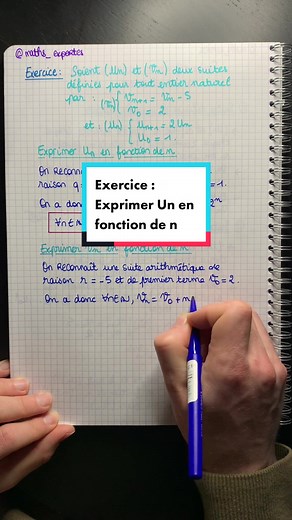 @maths_expertes
Exercice : Soient (Un) et (Vn) deux suites
définies pour tout entier naturel
par : (Vn) { Vn+1 = Vn - 5
V0 = 2
et : (Un) { Un+1 = 2Un
U0 = 1.
Exprimer Un en fonction de n
On Reconn
raison q = = 1.
On a do 2^n
∀n∈ℕ
Exercice :
Exprimer Un en
fonction de n
Exprimer Vn en fonction de n
On Reconnaît une suite arithmétique de
raison r = -5 et de premier terme V0 = 2.
On a donc ∀n∈ℕ, Vn = V0 + n